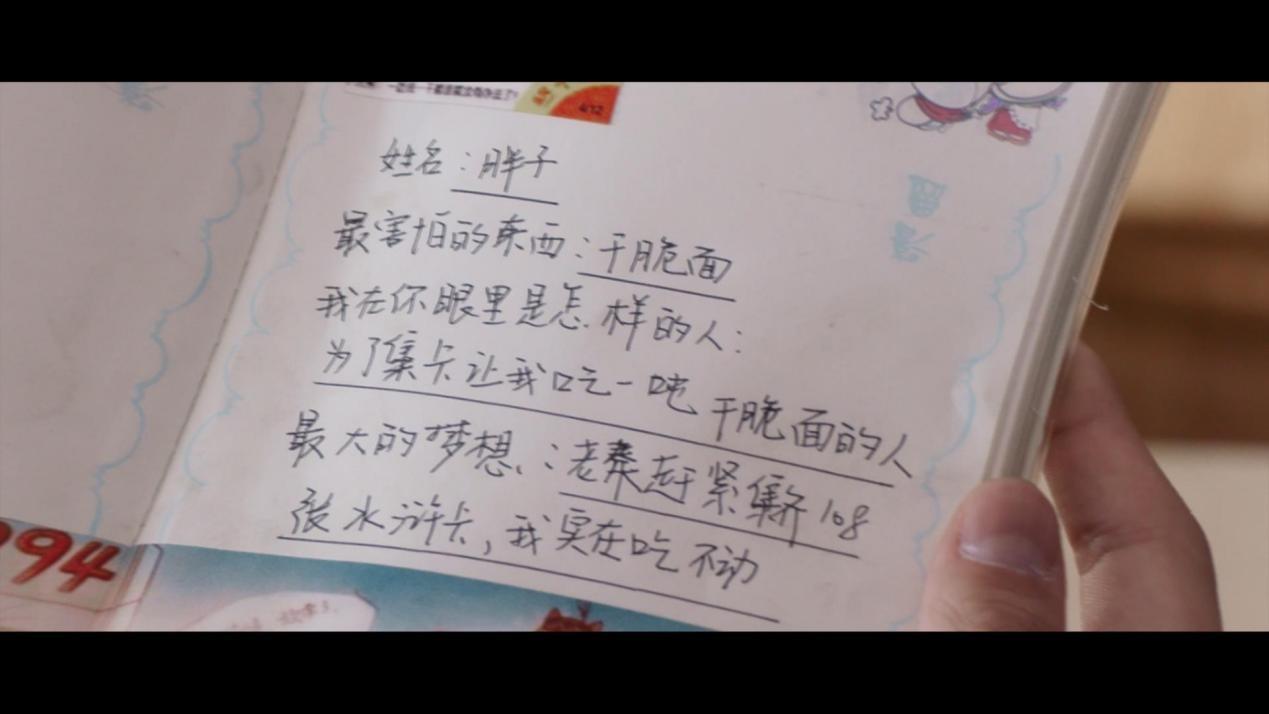 姓名：胖子
最害怕的东西：干脆面
我在你眼里是怎样的人：
为了集卡让我吃一吨干脆面的人
最大的梦想：老秦赶紧集齐108
张水浒卡，我实在吃不动
漫
94